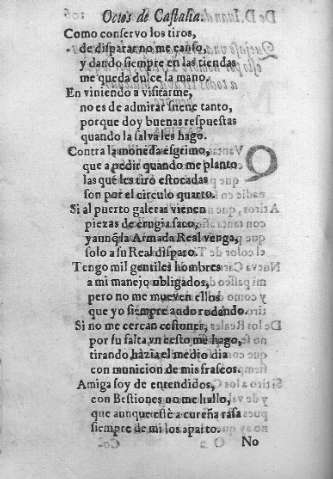 Ocios de Castalia.
Como conseruo los tiros,
de disparar no me canso,
y dando siempre en las tiendas
me queda dulce la mano.
En viniendo a visitarme,
no es de admirar suene tanto,
porque doy buenas respuestas
quando la salva les hago.
Contra la moneda esgrimo,
que a pedir quando me planto
las que les tiro estocadas
son por el circulo quarto.
Si al puerto galeras vienen
piezas de crugia saco,
y aunq̃ sea Armada Real venga,
solo a su Real disparo.
Tengo mil gentiles hombres
a mi manejo obligados,
pero no me mueven ellos
que yo siempre ando rodando.
Si no me cercan cestones,
por su falta vn cesto me hago,
tirando házia el medio dia
con municion de mis frascos.
Amiga soy de entendidos,
con Bestiones no me hallo,
que aunque estè a cureña rasa
siempre de mi los aparto.
No